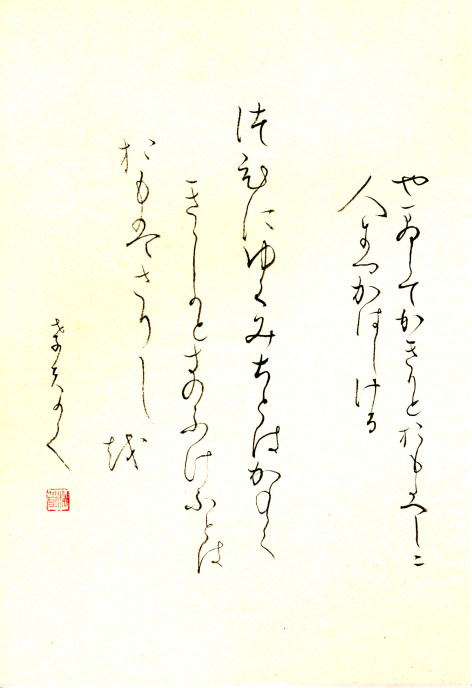 やまひしてかきりとおもへしニ
人につかはしける
つひにゆくみちとはかねて
きゝしかときのふけふとは
おもはさりし
越